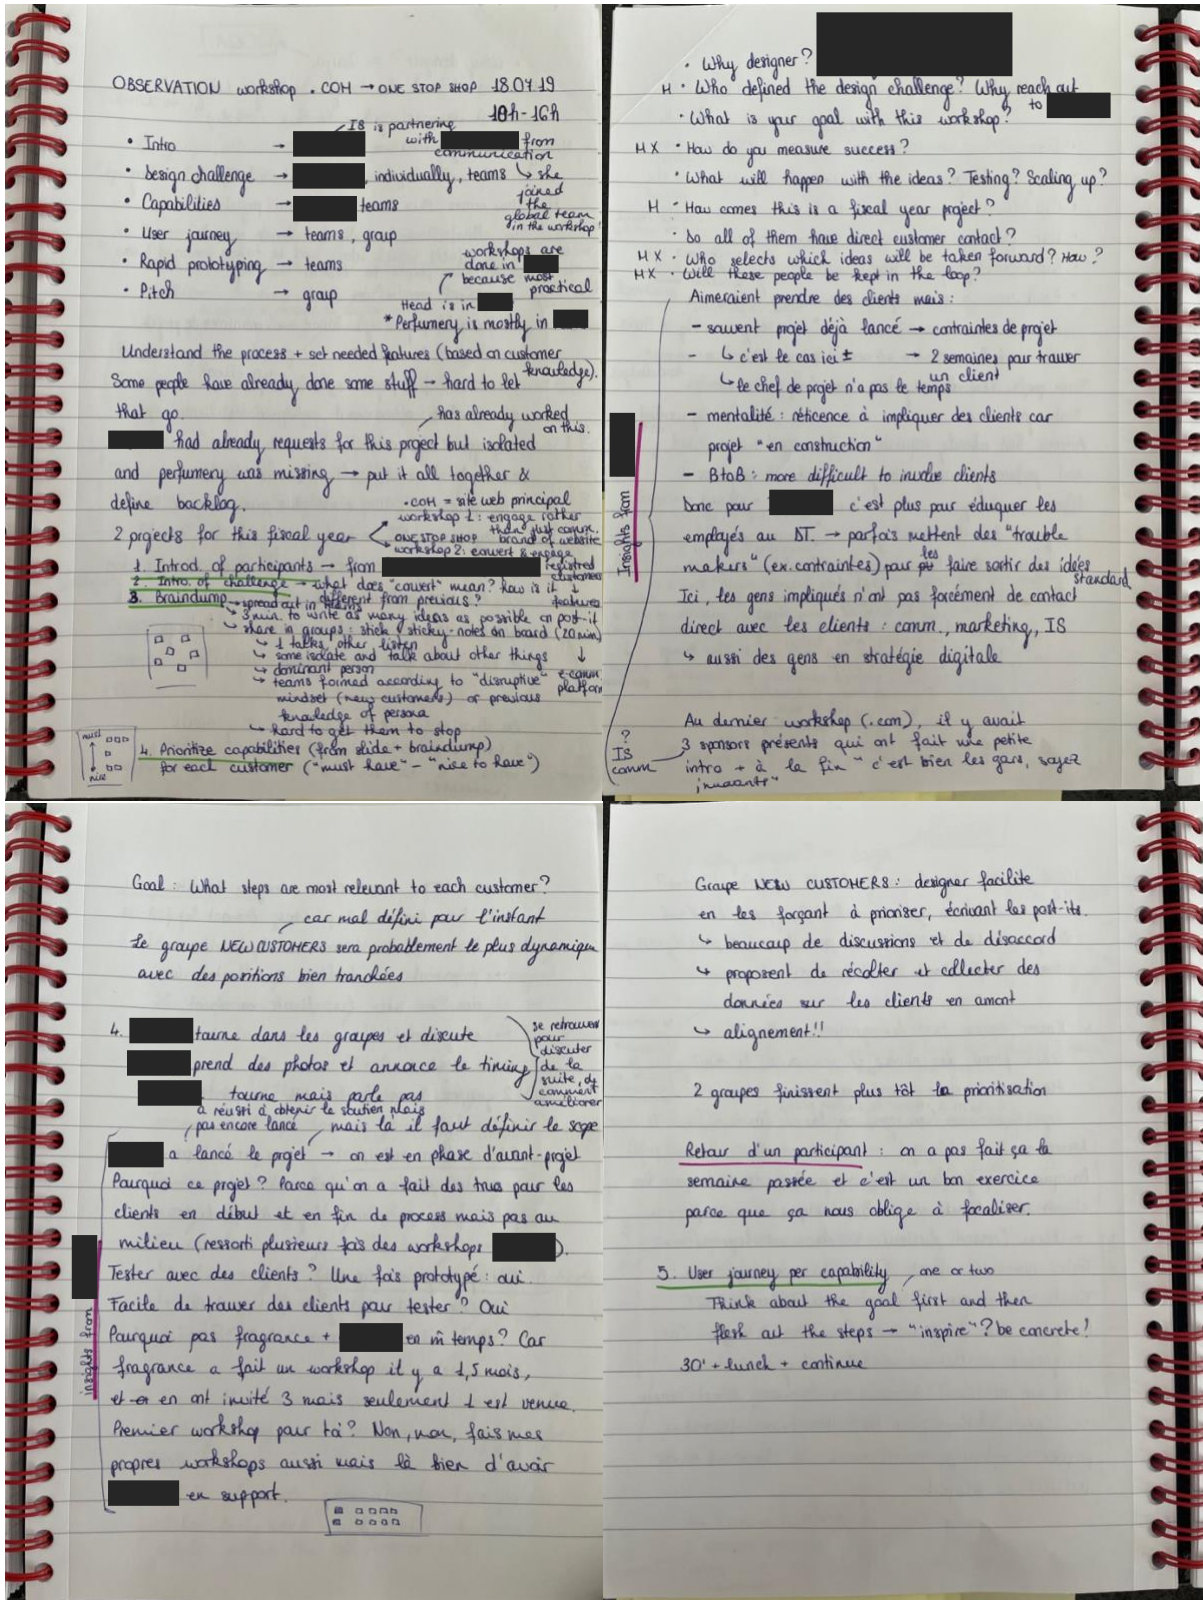 OBSERVATION workshop .COM → ONE STOP SHOP 18.07.19
10h-16h
IS is partnering
• Intro → with from
communication
• Design challenge → , individually, teams ↳ she
joined
the
global team
in the workshop!
• Capabilities → teams
• User journey → teams, group
• Rapid prototyping → teams
• Pitch → group
workshops are
done in
because most
practical
Head is in
*Perfumery is mostly in
Understand the process + set needed features (based on customer
knowledge).
Some people have already done some stuff → hard to let
that go.
has already worked
on this.
had already requests for this project but isolated
and perfumery was missing → put it all together &
define backlog.
.COM = site web principal
workshop 1: engage rather
than just comm.
brand of website
2 projects for this fiscal year
ONE STOP SHOP
workshop 2: convert & engage
registred
customers
1. Introd. of participants → from
2. Intro. of challenge → what does "convert" mean? how is it
different from previous?
features
3. Braindump → spread out in teams
↳ 3 min. to write as many ideas as possible on post-it
↳ share in groups: stick sticky-notes on board (20 min)
↳ 1 talks, other listen
↳ some isolate and talk about other things
↳ dominant person
↳ teams formed according to "disruptive"
mindset (new customers) or previous
knowledge of persona
e-comm
platform
↳ hard to get them to stop
must
nice
4. Prioritize capabilities (from slide + braindump)
for each customer ("must have" - "nice to have")
• Why designer?
H • Who defined the design challenge? Why reach out
to
• What is your goal with this workshop?
H X • How do you measure success?
• What will happen with the ideas? Testing? Scaling up?
H • How comes this is a fiscal year project?
• Do all of them have direct customer contact?
H X • Who selects which ideas will be taken forward? How?
H X • Will these people be kept in the loop?
Aimeraient prendre des clients mais :
- souvent projet déjà lancé → contraintes de projet
- ↳ c'est le cas ici ± → 2 semaines pour trouver
un client
↳ le chef de projet n'a pas le temps
- mentalité : réticence à impliquer des clients car
projet "en construction"
- BtoB : more difficult to involve clients
Insights from
Donc pour c'est plus pour éduquer les
employés au DT. → parfois mettent des "trouble
makers" (ex. contraintes) pour les faire sortir des idées
standard
Ici, les gens impliqués n'ont pas forcément de contact
direct avec les clients : comm., marketing, IS
↳ aussi des gens en stratégie digitale
Au dernier workshop (.com), il y avait
?
IS
comm
3 sponsors présents qui ont fait une petite
intro + à la fin "c'est bien les gars, soyez
innovants"
Goal : What steps are most relevant to each customer?
car mal défini pour l'instant
Le groupe NEW CUSTOMERS sera probablement le plus dynamique
avec des positions bien tranchées
4. tourne dans les groupes et discute
prend des photos et annonce le timing
tourne mais parle pas
se retrouver
pour
discuter
de la
suite, de
comment
améliorer
a réussi à obtenir le soutien mais
pas encore lancé
mais là il faut définir le scope
a lancé le projet → on est en phase d'avant-projet
Pourquoi ce projet ? Parce qu'on a fait des trucs pour les
clients en début et en fin de process mais pas au
milieu (ressorti plusieurs fois des workshops ).
Tester avec des clients ? Une fois prototypé : oui.
Facile de trouver des clients pour tester ? Oui
insights from
Pourquoi pas fragrance + en m̂ temps ? Car
fragrance a fait un workshop il y a 1,5 mois,
et en ont invité 3 mais seulement 1 est venue.
Premier workshop pour toi ? Non, non, fais mes
propres workshops aussi mais là bien d'avoir
en support.
Groupe NEW CUSTOMERS : designer facilite
en les forçant à prioriser, écrivant les post-its.
↳ beaucoup de discussions et de désaccord
↳ proposent de récolter et collecter des
données sur les clients en amont
↳ alignement!!
2 groupes finissent plus tôt la prioritisation
Retour d'un participant : on a pas fait ça la
semaine passée et c'est un bon exercice
parce que ça nous oblige à focaliser.
5. User journey per capability one or two
Think about the goal first and then
flesh out the steps → "inspire"? be concrete!
30' + lunch + continue